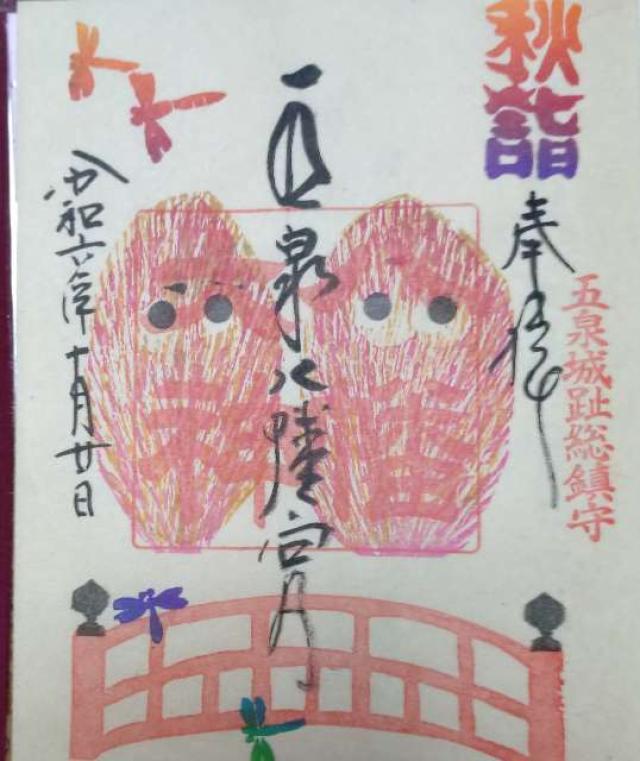 秋詣
奉拝
五泉城趾総鎮守
五泉八幡宮
令和六年十月廿日